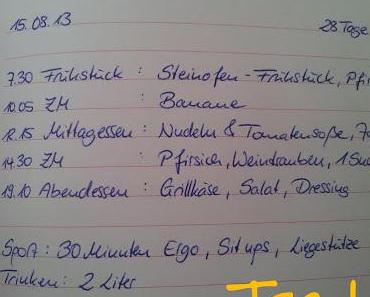 15.08.13 28 Tage
7.30 Frühstück : Steinofen-Frühstück, Pfir
10.05 ZM : Banane
12.15 Mittagessen : Nudeln & Tomatensoße, 7
14.30 ZM : Pfirsich, Weintrauben, 1
19.10 Abendessen : Grillkäse, Salat, Dressing
Sport: 30 Minuten Ergo, Sit ups, Liegestütze
Trinken: 2 Liter